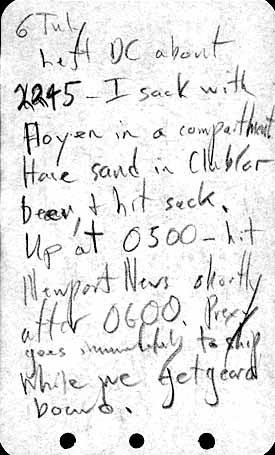 6 July
Left DC about
2245 - I sack with
Floyen in a compartment
Have sand in Club Car
beer, & hit sack.
Up at 0500 - hit
Newport News shortly
after 0600. Prexy
goes immediately to ship
while we get gear
board.